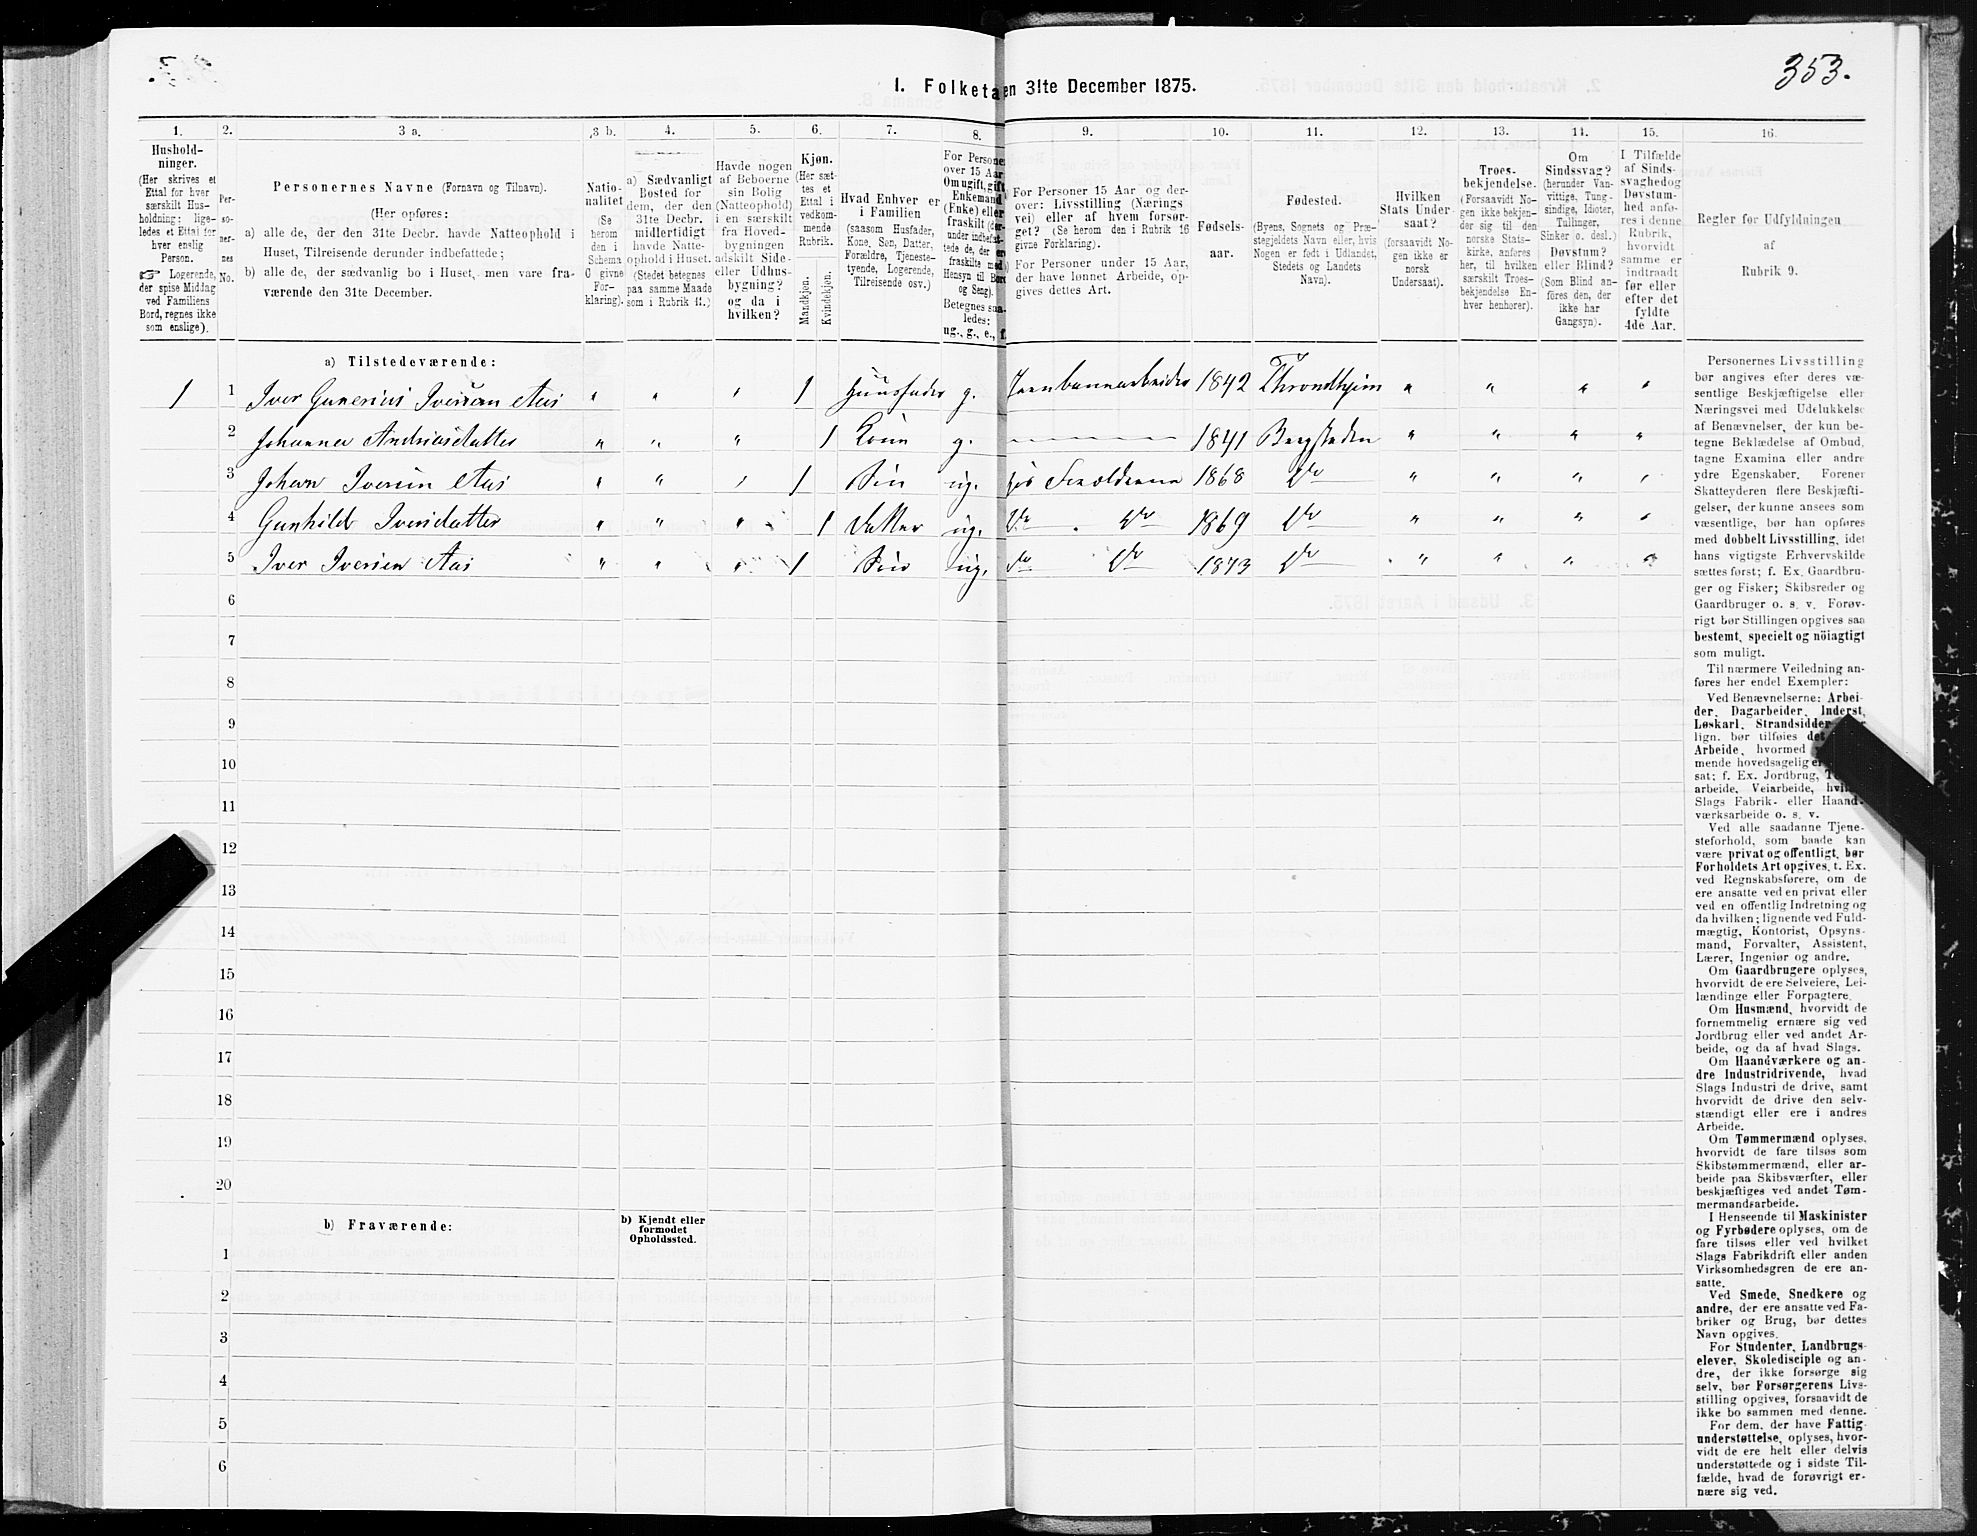 353.
I. Folketa en 31te December 1875.
1. 2. 3 a. 3 b. 4. 5. 6. 7. 8. 9. 10. 11. 12. 13. 14. 15. 16.
Hushold-
ninger.
(Her skrives et
Ettal for hver
særskilt Hus-
holdning; lige-
ledes et Ettal for
hver enslig
Person.
☞ Logerende,
der spise Middag
ved Familiens
Bord, regnes ikke
som enslige).
Per-
so-
ner-
nes
No.
Personernes Navne (Fornavn og Tilnavn).
(Her opføres:
a) alle de, der den 31te Decbr. havde Natteophold i
Huset, Tilreisende derunder indbefattede;
b) alle de, der sædvanlig bo i Huset, men vare fra-
værende den 31te December.
Natio-
nalitet
(Se
herom
den i
Schema
C givne
For-
klaring).
a) Sædvanligt
Bosted for
dem, der den
31te Decbr.
midlertidigt
havde Natte-
ophold i Huset.
(Stedet betegnes
paa samme Maade
som i Rubrik 11.)
Havde nogen
af Beboerne
sin Bolig
(Natteophold)
i en særskilt
fra Hoved-
bygningen
adskilt Side-
eller Udhus-
bygning?
og da i
hvilken?
Kjøn.
(Her sæt-
tes et
Ettal i
vedkom-
mende
Rubrik.
Mandkjøn.
Kvindekjøn.
Hvad Enhver er
i Familien
(saasom Husfader,
Kone, Søn, Datter,
Forældre, Tjeneste-
tyende, Logerende,
Tilreisende osv.)
For Personer
over 15 Aar
Om ugift, gift,
Enkemand
(Enke) eller
fraskilt (der-
under indbefat-
tede de, der ere
fraskilte med
Hensyn til Bord
og Seng).
Betegnes saa-
ledes:
ug., g., e., f.
For Personer 15 Aar og der-
over: Livsstilling (Nærings
vei) eller af hvem forsør-
get? (Se herom den i Rubrik 16
givne Forklaring).
For Personer under 15 Aar,
der have lønnet Arbeide, op-
gives dettes Art.
Fødsels-
aar.
Fødested.
(Byens, Sognets og Præ-
stegjeldets Navn eller, hvis
Nogen er født i Udlandet,
Stedets og Landets
Navn).
Hvilken
Stats Under-
saat?
(forsaavidt No-
gen ikke er
norsk
Undersaat).
Troes-
bekjendelse.
(Forsaavidt No-
gen ikke bekjen-
der sig til den
norske Stats-
kirke, anføres
her, til hvilken
særskilt Troes-
bekjendelse En-
hver henhører).
Om
Sindssvag?
(herunder Van-
vittige, Tung-
sindige, Idioter,
Tullinger,
Sinker o. desl.)
Døvstum?
eller Blind?
(Som Blind an-
føres den, der
ikke har
Gangsyn).
I Tilfælde
af Sinds-
svaghed og
Døvstum-
hed anfø-
res i denne
Rubrik,
hvorvidt
samme er
indtraadt
før eller
efter det
fyldte
4de Aar.
Regler for Udfyldningen
af
Rubrik 9.
a) Tilstedeværende:
1 1 Iver Gunerius Iversen Aas " " " 1 Huusfader g. Jernbanearbeider 1842 Throndhjem " " " "
2 Johanna Andriasdatter " " " 1 Kone g. 1841 Bergstaden " " " "
3 Johan Iversen Aas " " " 1 Søn ug. hos Forældrene 1868 Do " " " "
4 Gunhild Iversdatter " " " 1 Datter ug. Do Do 1869 Do " " " "
5 Iver Iversen Aas " " " 1 Søn ug. Do Do 1873 Do " " " "
6
7
8
9
10
11
12
13
14
15
16
17
18
19
20
b) Fraværende:
b) Kjendt eller
formodet
Opholdssted.
1
2
3
4
5
6
Personernes Livsstilling
bør angives efter deres væ-
sentlige Beskjæftigelse eller
Næringsvei med Udelukkelse
af Benævnelser, der kun be-
tegne Beklædelse af Ombud,
tagne Examina eller andre
ydre Egenskaber. Forener
Skatteyderen flere Beskjæfti-
gelser, der kunne ansees som
væsentlige, bør han opføres
med dobbelt Livsstilling, idet
hans vigtigste Erhvervskilde
sættes først; f. Ex. Gaardbru-
ger og Fisker; Skibsreder og
Gaardbruger o. s. v. Forøv-
rigt bør Stillingen opgives saa
bestemt, specielt og nöiagtigt
som muligt.
Til nærmere Veiledning an-
føres her endel Exempler:
Ved Benævnelserne: Arbei-
der, Dagarbeider, Inderst,
Løskarl, Strandsidder
lign. bør tilføies det
Arbeide, hvormed
mende hovedsagelig er
sat; f. Ex. Jordbrug,
arbeide, Veiarbeide,
Slags Fabrik- eller Haand-
værksarbeide o. s. v.
Ved alle saadanne Tjene-
steforhold, som baade kan
være privat og offentligt, bør
Forholdets Art opgives, t. Ex.
ved Regnskabsførere, om de
ere ansatte ved en privat eller
ved en offentlig Indretning og
da hvilken; lignende ved Fuld-
mægtig, Kontorist, Opsyns-
mand, Forvalter, Assistent,
Lærer, Ingeniør og andre.
Om Gaardbrugere oplyses,
hvorvidt de ere Selveiere, Lei-
lændinge eller Forpagtere.
Om Husmænd, hvorvidt de
fornemmelig ernære sig ved
Jordbrug eller ved andet Ar-
beide, og da af hvad Slags.
Om Haandværkere og an-
dre Industridrivende, hvad
Slags Industri de drive, samt
hvorvidt de drive den selv-
stændigt eller ere i andres
Arbeide.
Om Tømmermænd oplyses,
hvorvidt de fare tilsøs som
Skibstømmermænd, eller ar-
beide paa Skibsværfter, eller
beskjæftiges ved andet Tøm-
mermandsarbeide.
I Henseende til Maskinister
og Fyrbødere oplyses, om de
fare tilsøs eller ved hvilket
Slags Fabrikdrift eller anden
Virksomhedsgren de ere an-
satte.
Ved Smede, Snedkere og
andre, der ere ansatte ved Fa-
briker og Brug, bør dettes
Navn opgives.
For Studenter, Landbrugs-
elever, Skoledisciple og an-
dre, der ikke forsørge sig
selv, bør Forsørgerens Livs-
stilling opgives, forsaavidt de
ikke bo sammen med denne.
For dem, der have Fattig-
understøttelse, oplyses, hvor-
vidt de ere helt eller delvis
understøttede og i sidste Til-
fælde, hvad de forøvrigt er-
nære sig ved.